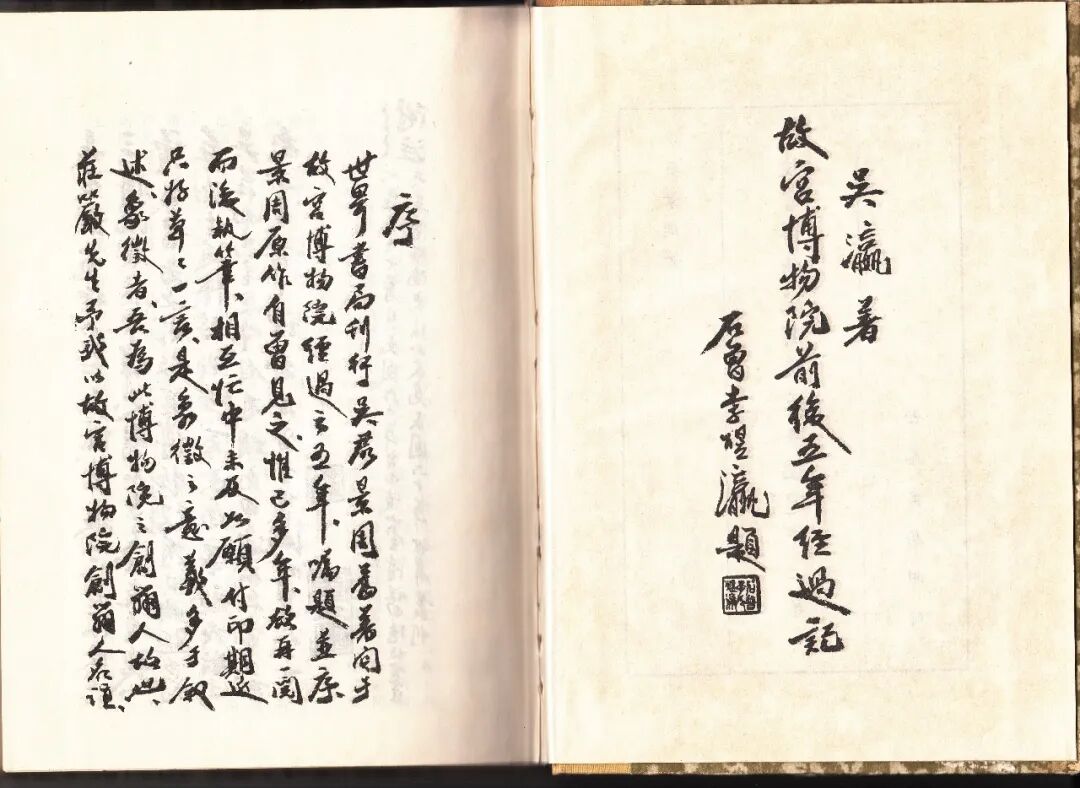 吳瀛著
故宮博物院前後五年經過記
石曾李煜瀛題
序
世界書局刊行吳君景周舊著関于
故宮博物院經過之五年、囑題並序
景周原作自曾見之、惟已多年、欲再閱
而後執筆、相互忙中未及如願付印期近
只好草々一言、是象徵之意義多于敘
述、象徵者、吾為此博物院之創辦人故也、
莊嚴先生予我以故宮博物院創辦人名